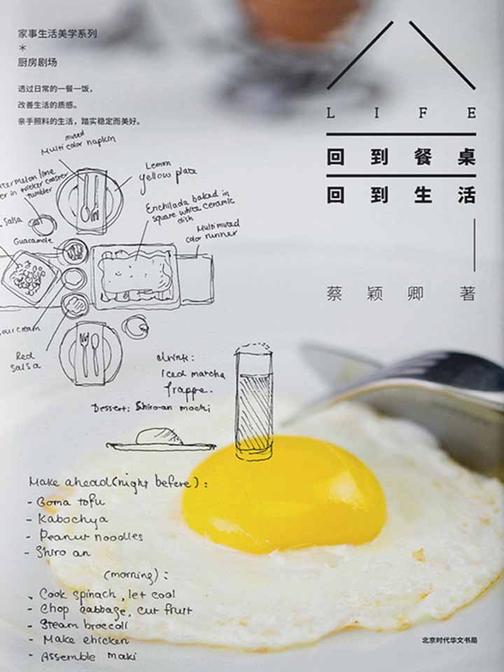 家事生活美学系列
*
厨房剧场
透过日常的一餐一饭，
改善生活的质感。
亲手照料的生活，踏实稳定而美好。
LIFE
回到餐桌
回到生活
蔡颖卿 著
muted
Multi color napkin
Lemon
yellow plate
termelon lime
er in wicker coaster
tumbler
Salsa
Guacamole
Enchilada baked in
square white ceramic
dish
Multi muted
color runner
our cream
Red
Salsa
drink:
iced matcha
frappe.
Dessert: Shiro-an mochi
Make ahead (night before):
- Goma tofu
- Kabocya
- Peanut noodles
- Shiro an
(morning):
- Cook spinach, let cool
- Chop cabbage, cut fruit
- Steam broccoli
- Make chicken
- Assemble maki
北京时代华文书局